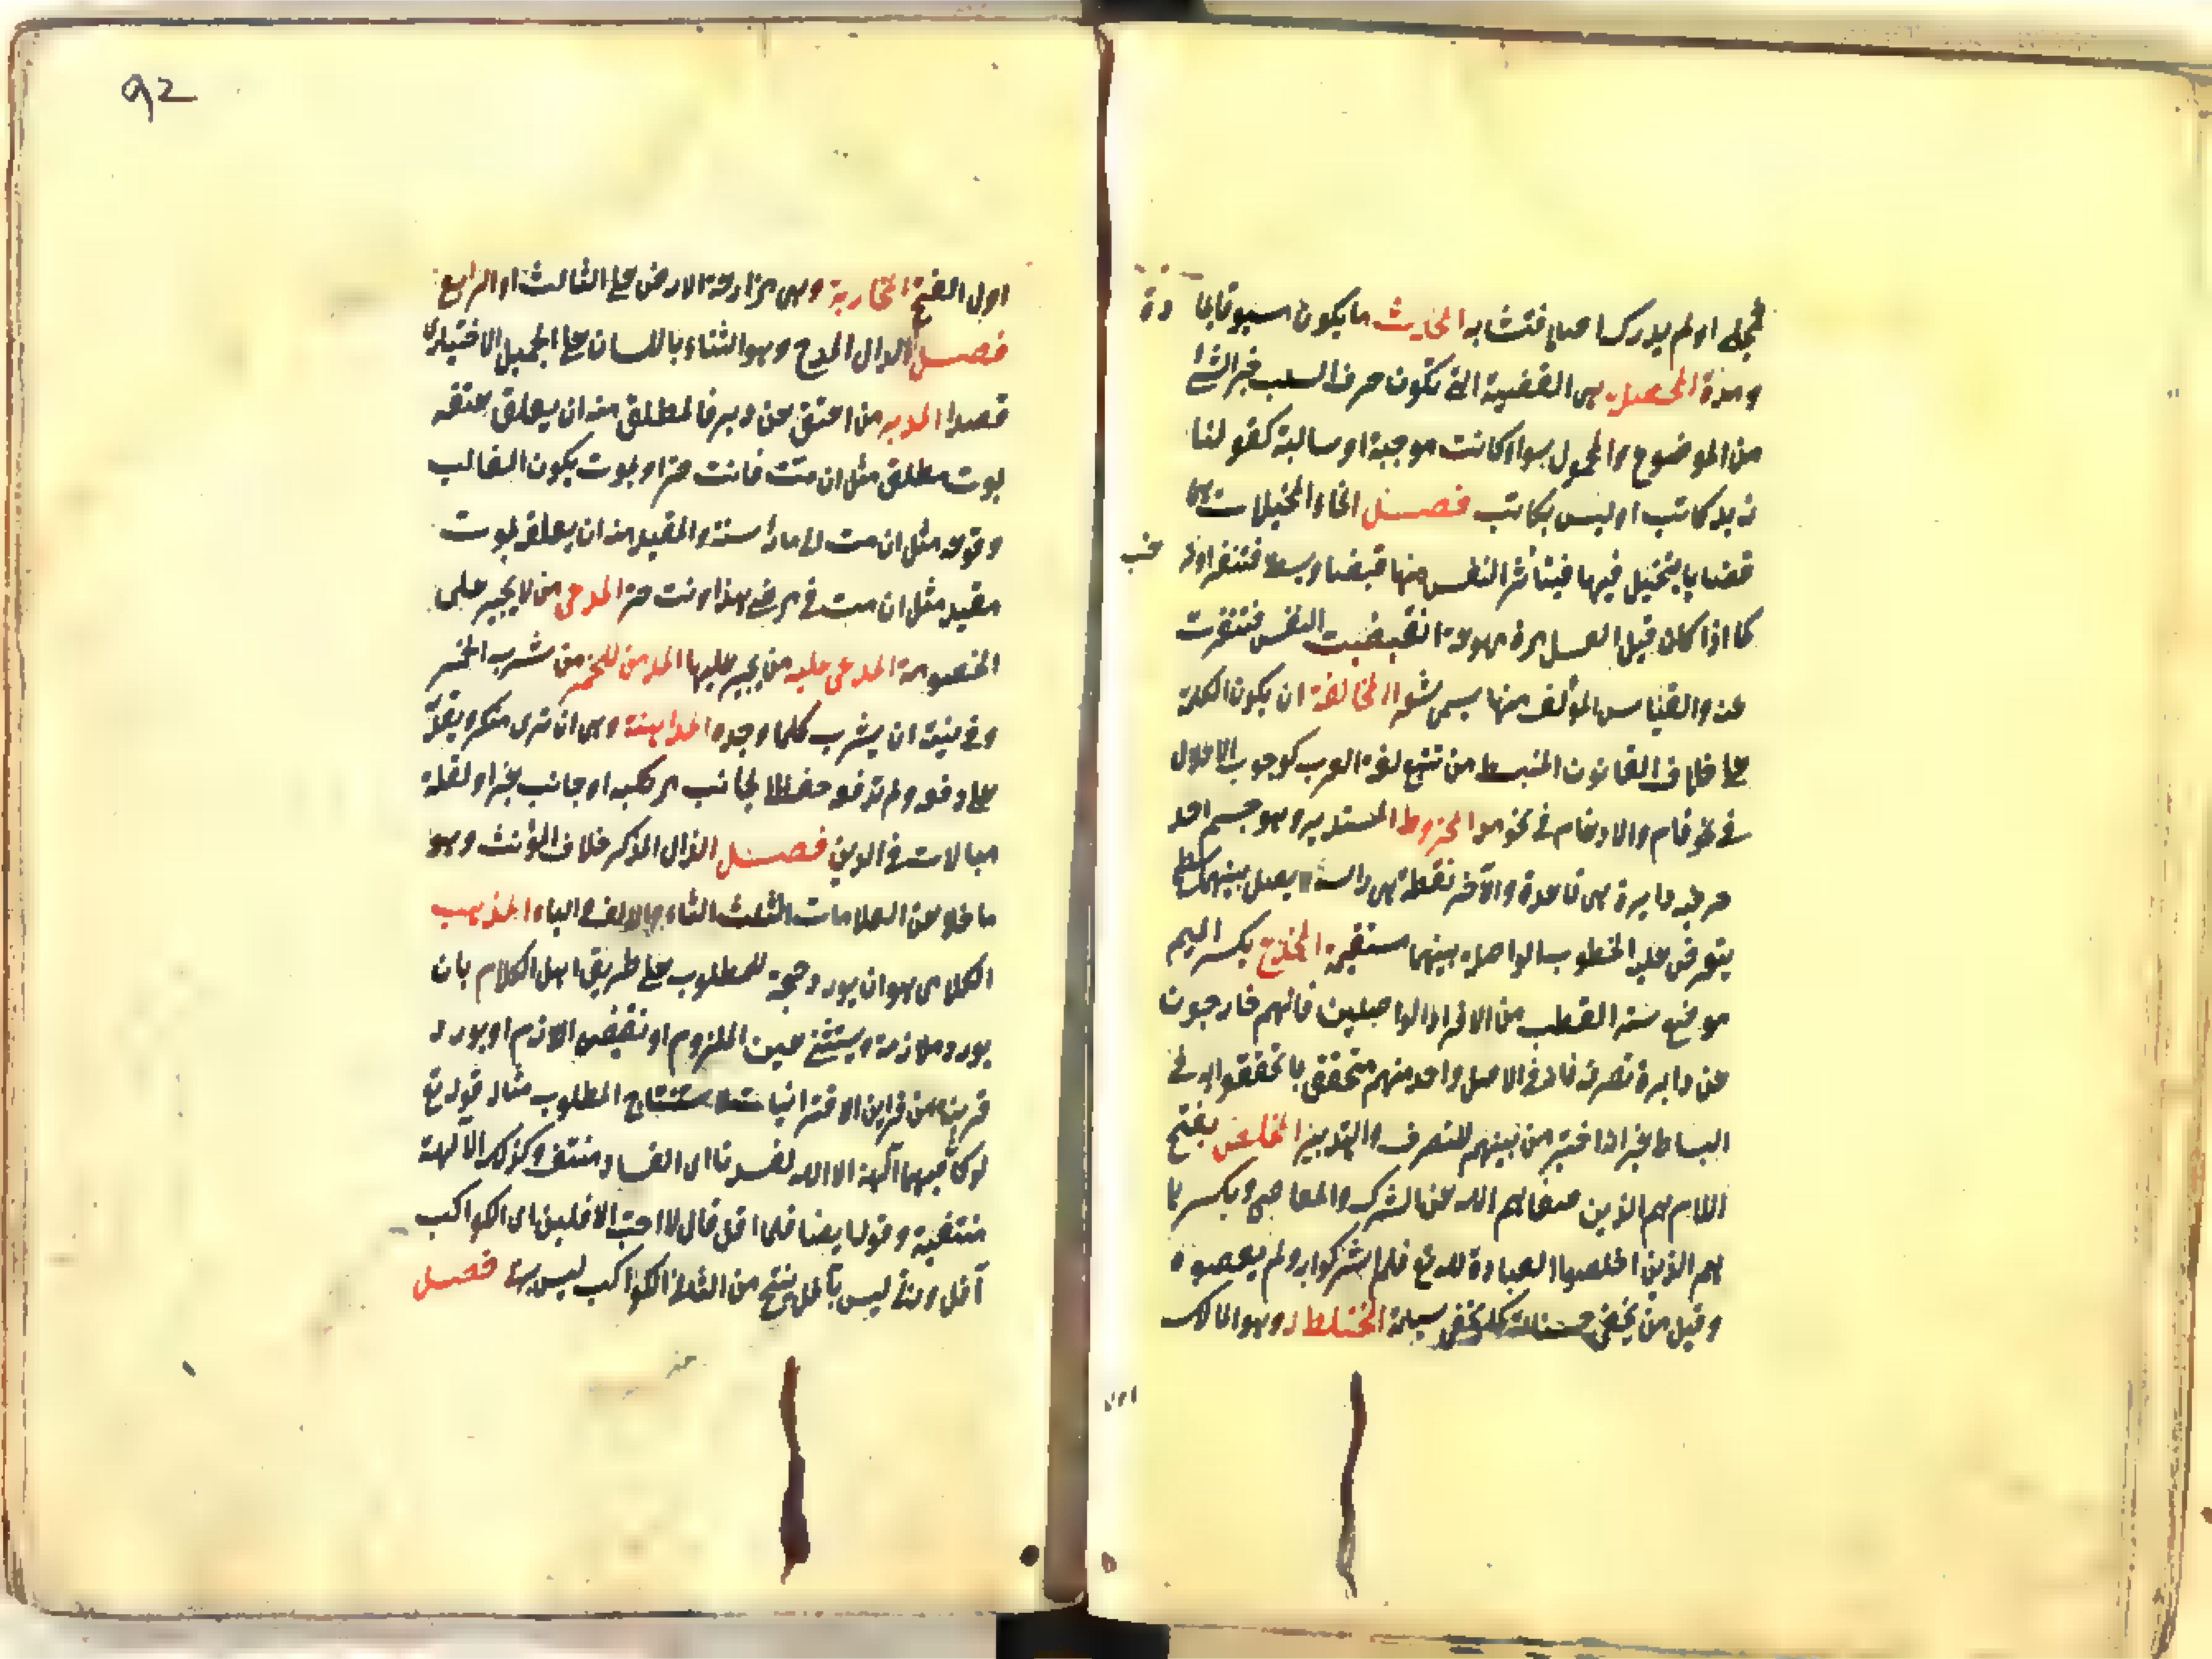 فمجمل او لم يدرك اصلا فمتشابه المحدث ما يكون مسبوقا بما دة
ومدة المحصلة هى القضية التى لا تكون حرف السلب جزء الشئ
من الموضوع والمحمول سواء كانت موجبة او سالبة كقولنا
زيد كاتب او ليس بكاتب فصل الخاء المخيلات هى
قضايا يتخيل فيها فيتأثر النفس منها قبضا وبسطا فتنفر او ترغب
كما اذا كان قيل العسل مرة مهوعة انقبضت النفس فتنفرت
عنه والقياس المؤلف منها يسمى شعرا المخالفة ان يكون الكلمة
على خلاف القانون المنبسط من تتبع لغة العرب كوجوب الاعلال
فى نحو قام والادغام فى نحو مد المخروط المستدير وهو جسم احد
طرفيه دايرة هى قاعدة والآخر نقطة هى راسه يصل بينهما سطح
يتفرض عليه الخطوط الواصلة بينهما مستقيمة المخدع بكسر الميم
موضع ستر القطب من الافراد الواصلين فانهم خارجون
عن دايرة تصرفه فانه فى الاصل واحد منهم متحقق بما تحققوا به فى
البساط غير انه اختير من بينهم للتصرف والتدبير المخلص بفتح
اللام هم الذين صفاهم الله عن الشرك والمعاصى وبكسرها
هم الذين اخلصوا العبادة لله تع فلم يشركوا به ولم يعصوه
وقيل من يخفى حسناته كما يخفى سيئاته المختلط له وهو المالك
اول
92
اول الفتح المخابرة وهى مزارعة الارض على الثالث او الرابع
فصل الدال المدح وهو الثناء باللسان على الجميل الاختيارى
قصدا المدبر من اعتق عن دبر فالمطلق منه ان يعلق عتقه
بموت مطلق مثل ان مت فانت حر او بموت يكون الغالب
وقوعه مثل ان مت الى مائة سنة والمقيد منه ان يعلقه بموت
مقيد مثل ان مت فى مرضى هذا فانت حر المدعى من لا يجبر على
الخصومة المدعى عليه من يجبر عليها المدمن للخمر من شرب الخمر
وفى نيته ان يشرب كلما وجده المداهنة وهى ان ترى منكرا ويقدر
على دفعه ولم تدفعه حفظا لجانب مرتكبه او جانب غيره او لقلة
مبالات فى الدين فصل الذال المذكر خلاف المؤنث وهو
ما خلا عن العلامات الثلث التاء والالف والياء المذهب
الكلامى هو ان يورد حجة للمطلوب على طريق اهل الكلام بان
يورد ملازمة ويستثنى عين الملزوم او نقيض اللازم او يورد
قرينة من قراين الاقترانيات لاستنتاج المطلوب مثاله قوله تع
لو كان فيهما آلهة الا الله لفسدتا اى الفساد منتف وكذلك الآلهة
منتفية وقوله ايضا فلما افل قال لا احب الآفلين اى الكواكب
آفل وربى ليس بآفل ينتج من الثانى الكواكب ليس بربى فصل